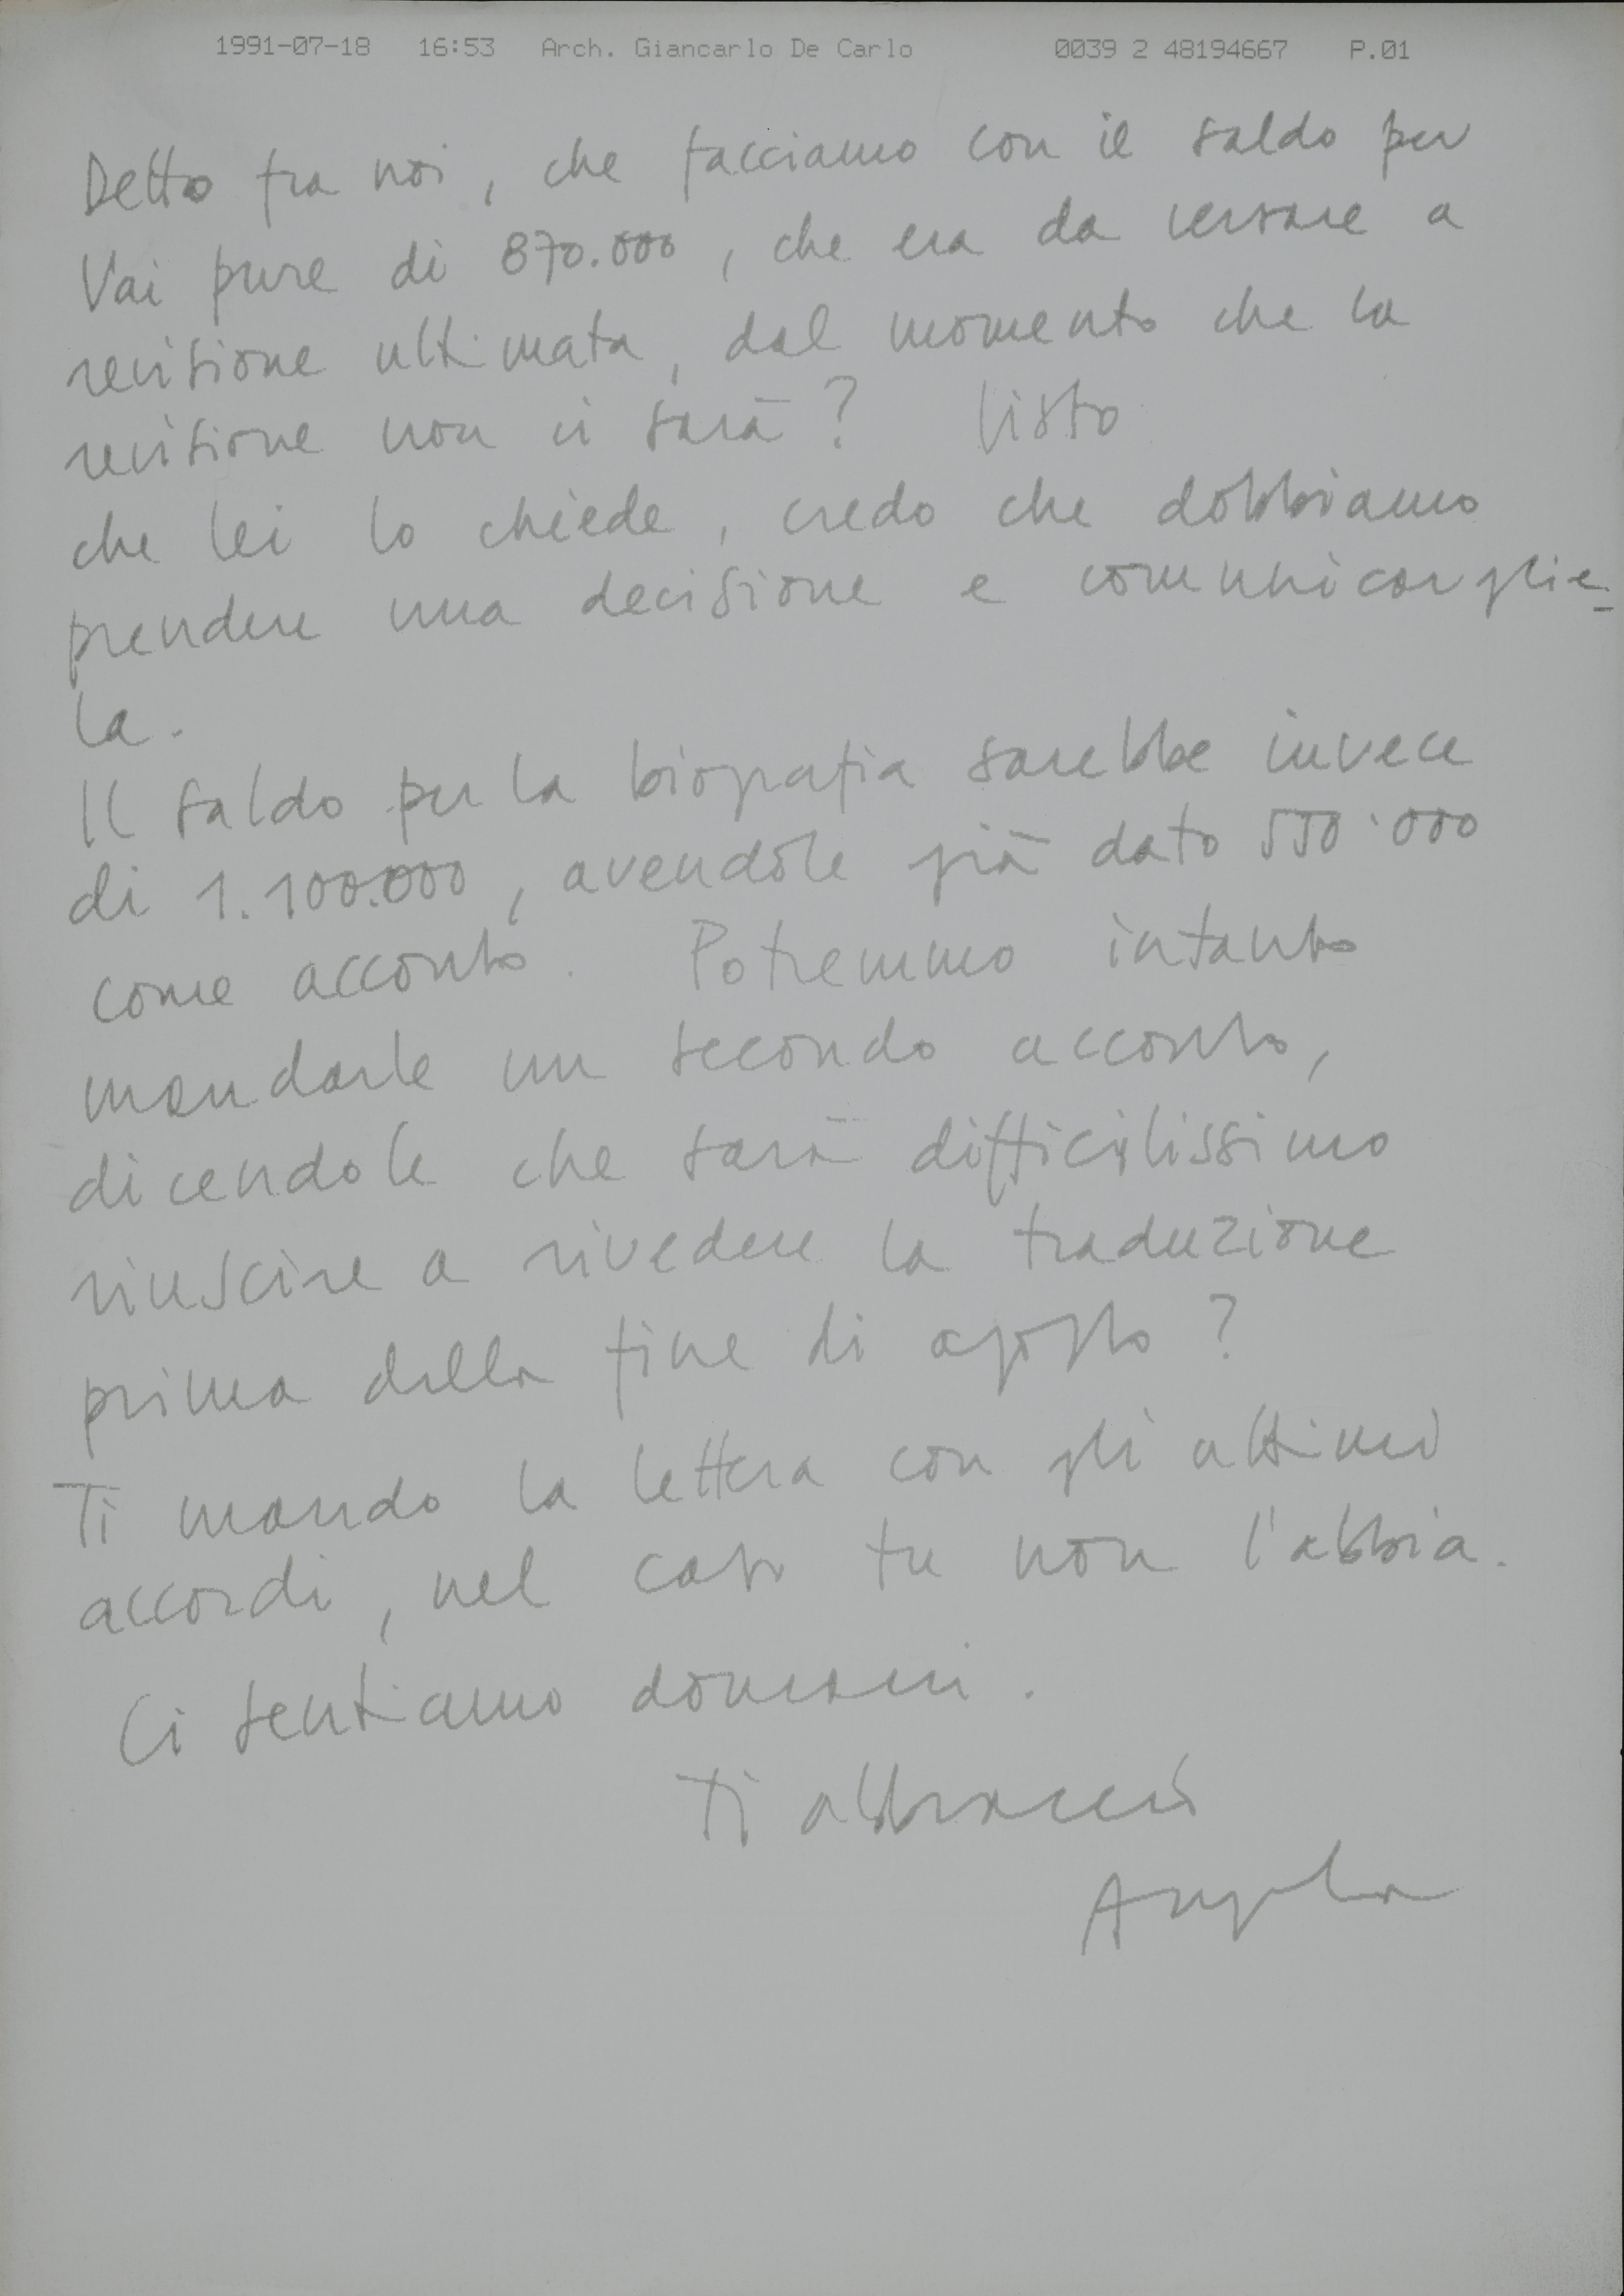 1991-07-18 16:53 Arch. Giancarlo De Carlo 0039 2 48194667 P.01
Detto fra noi, che facciamo con il saldo per
Vai pure di 870.000, che era da versare a
revisione ultimata, dal momento che la
revisione non ci sarà? Visto
che lei lo chiede, credo che dobbiamo
prendere una decisione e comunicarglie-
la.
Il saldo per la biografia sarebbe invece
di 1.100.000, avendole già dato 550.000
come acconto. Potremmo intanto
mandarle un secondo acconto,
dicendole che sarà difficilissimo
riuscire a rivedere la traduzione
prima della fine di agosto?
Ti mando la lettera con gli ultimi
accordi, nel caso tu non l'abbia.
Ci sentiamo domani.
Ti abbraccio
Angela